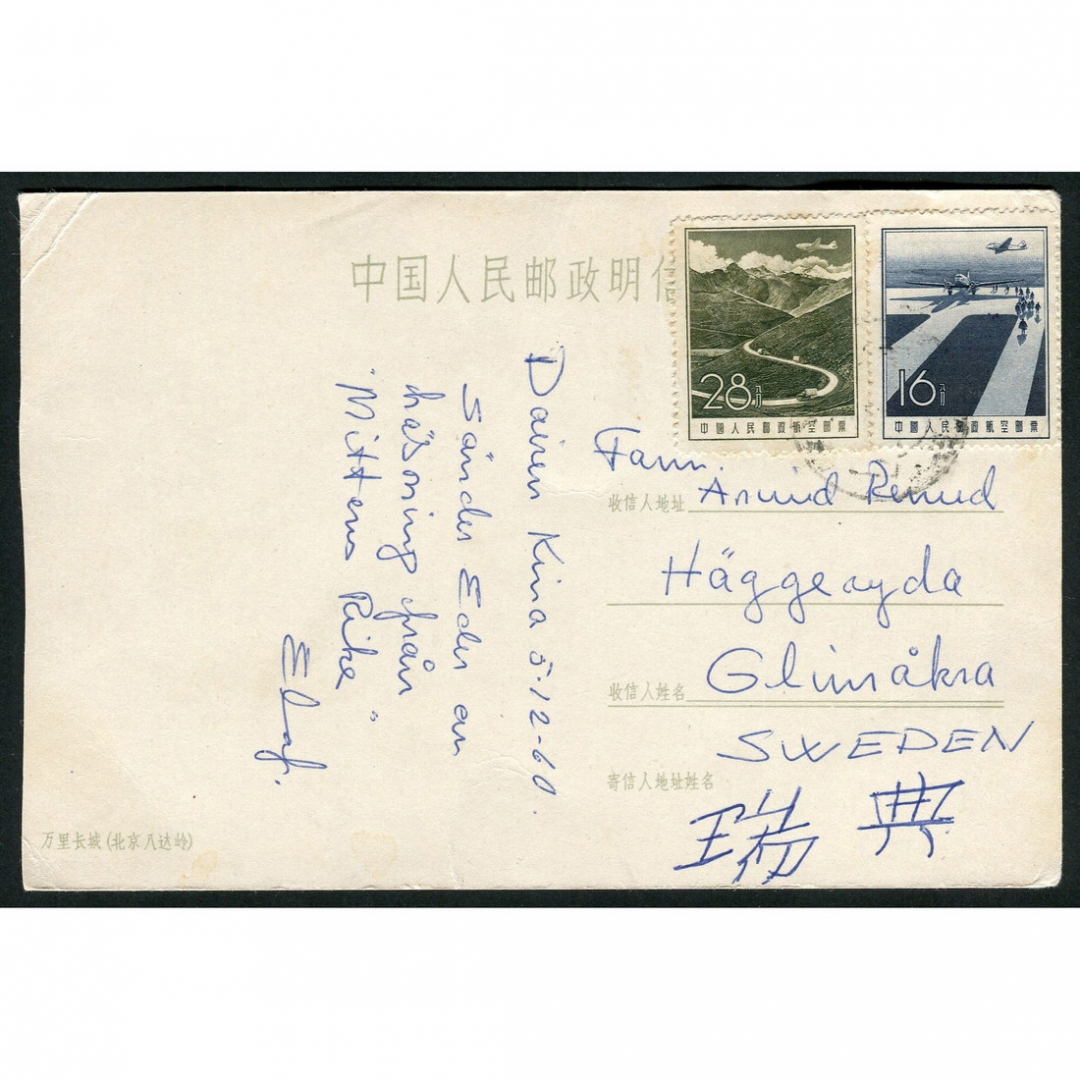 中国人民邮政明信
28分
中国人民邮政航空邮票
16分
中国人民邮政航空邮票
Dairen Kina 5.12-60.
Sänder Eder en
hälsning från
"Mittens Rike"
Elof.
Fam.
收信人地址 Arvid Renud
Häggeryda
收信人姓名 Glimåkra
SWEDEN
寄信人地址姓名
瑞典
万里长城(北京八达岭)